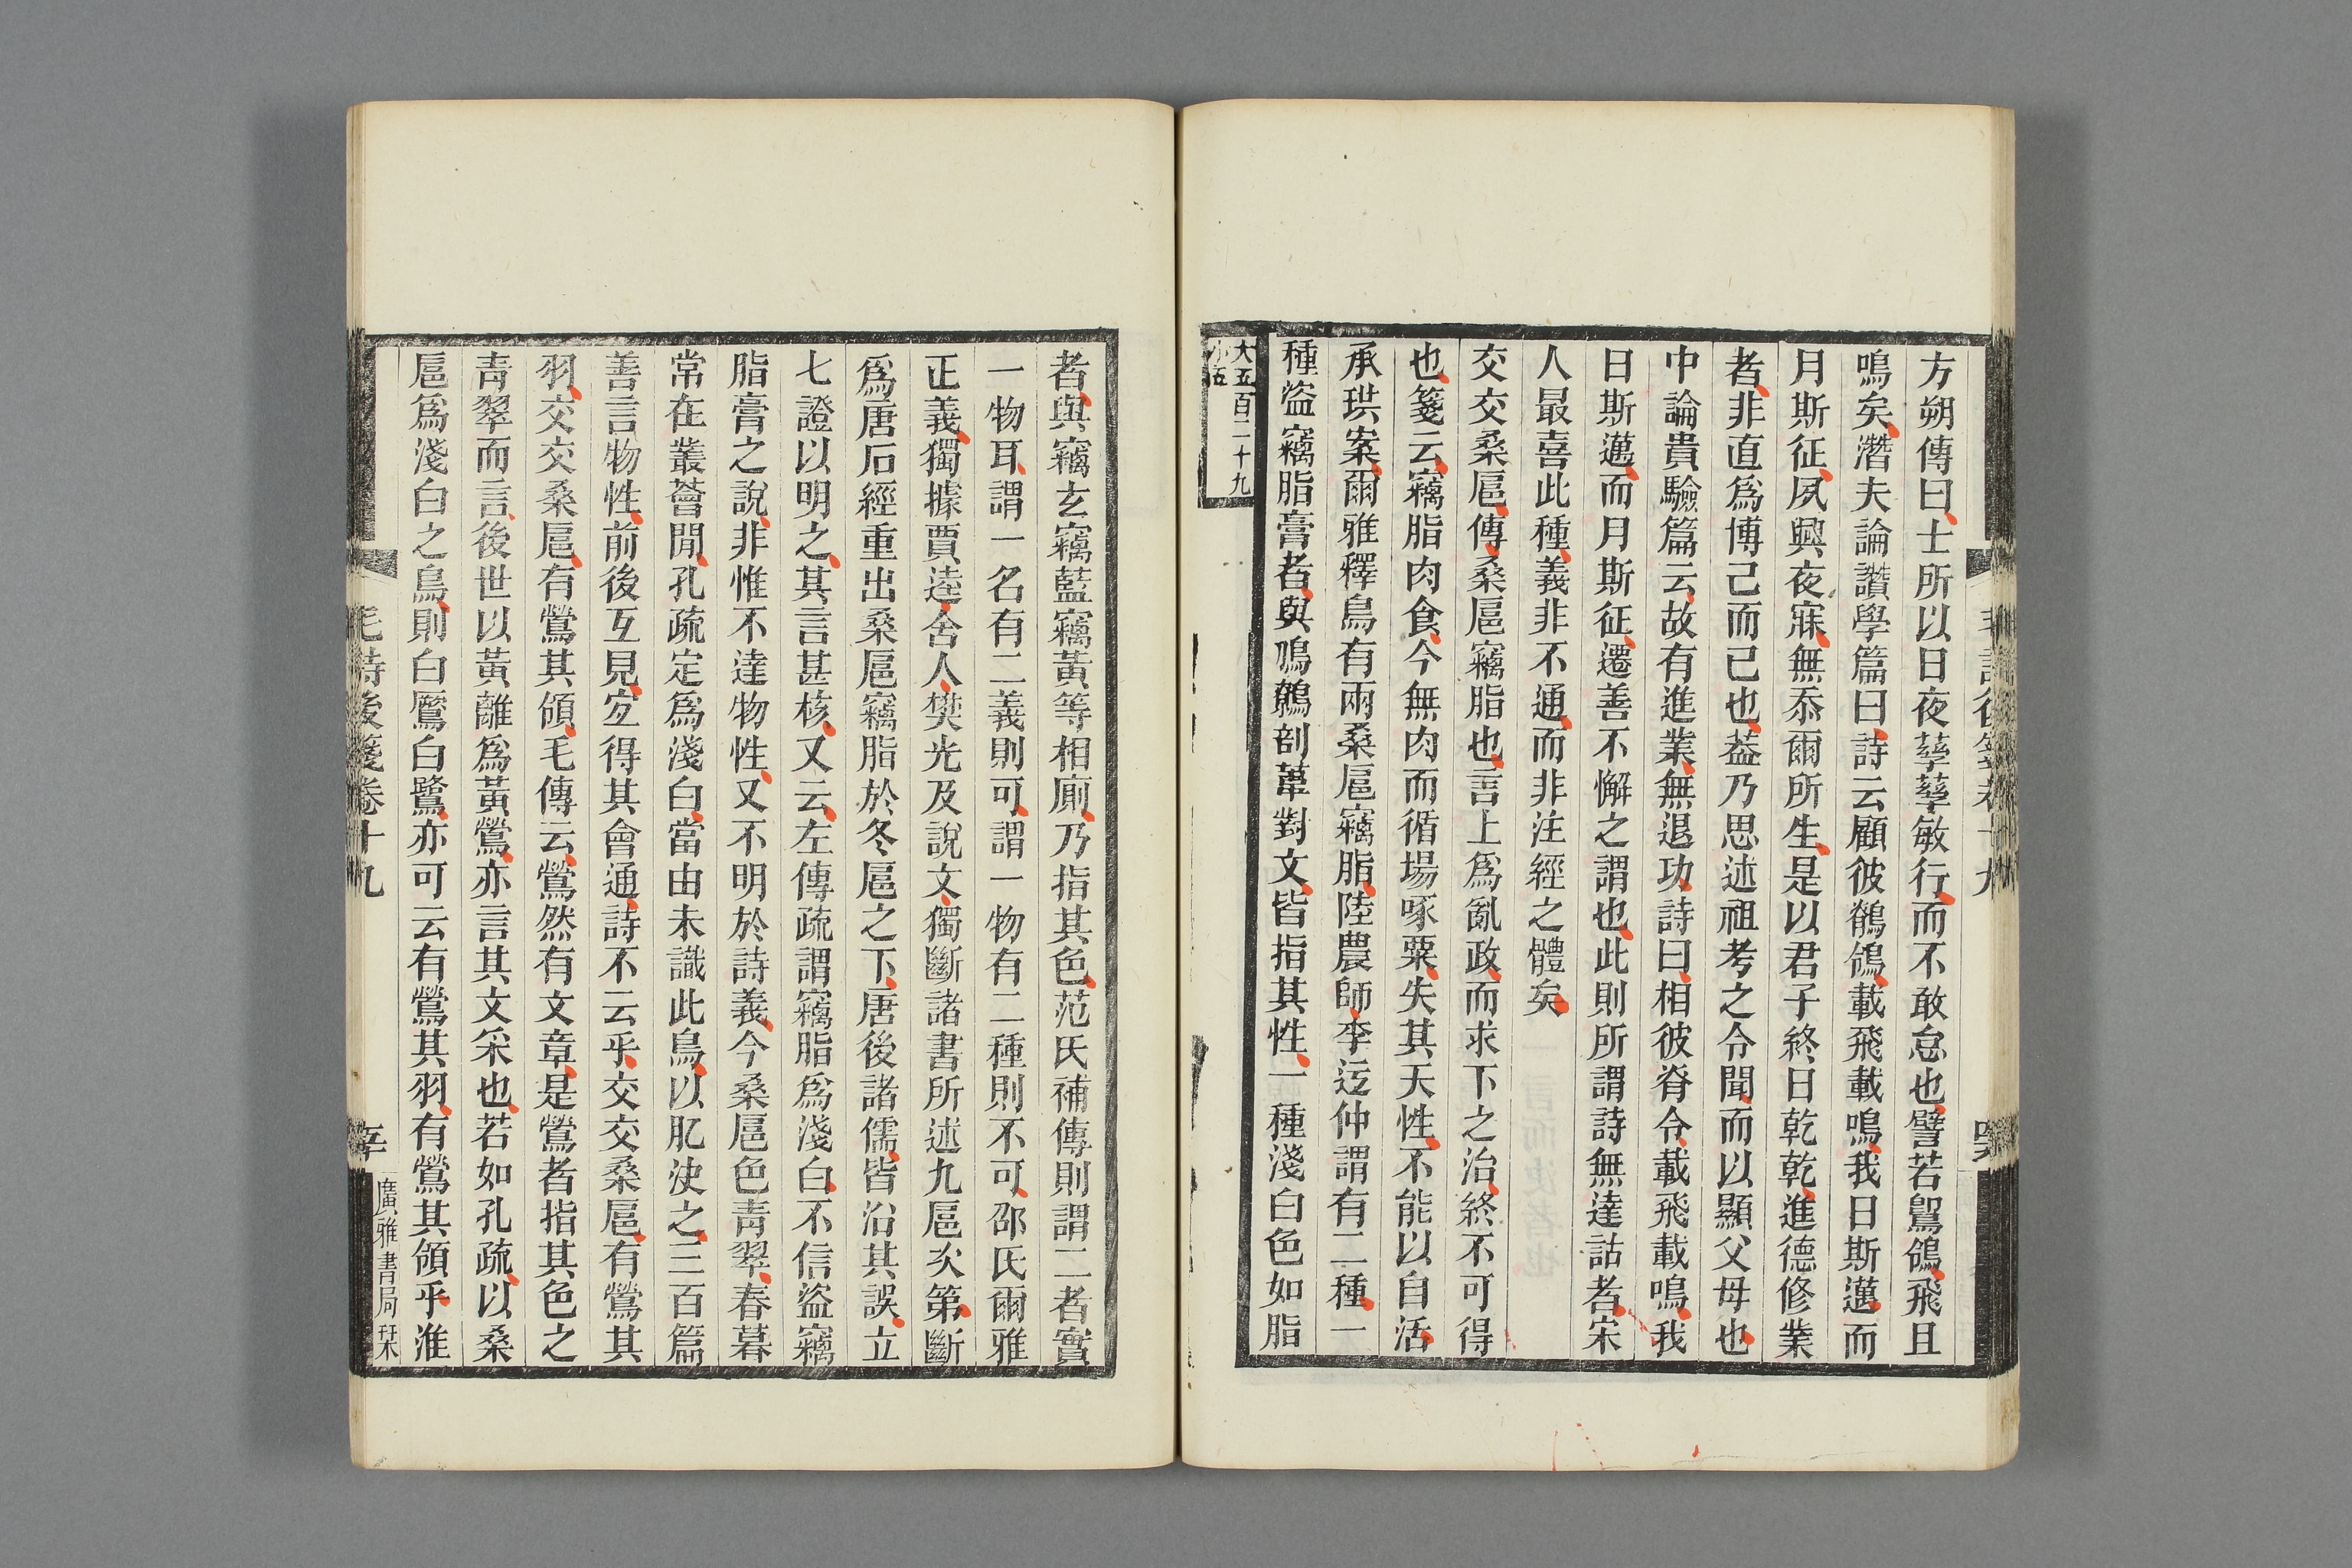 方朔傳曰士所以日夜孳孳敏行而不敢怠也譬若鴽鴒飛且
鳴矣潛夫論讚學篇曰詩云顧彼鶺鴒載飛載鳴我日斯邁而
月斯征夙興夜寐無忝爾所生是以君子終日乾乾進德修業
者非直爲博己而已也葢乃思述祖考之令聞而以顯父母也
中論貴驗篇云故有進業無退功詩曰相彼脊令載飛載鳴我
日斯邁而月斯征遷善不懈之謂也此則所謂詩無達詁者宋
人最喜此種義非不通而非注經之體矣
交交桑扈傳桑扈竊脂也言上爲亂政而求下之治終不可得
也箋云竊脂肉食今無肉而循場啄粟失其天性不能以自活
承珙案爾雅釋鳥有兩桑扈竊脂陸農師李迃仲謂有二種一
種盜竊脂膏者與鳭鷯剖葦對文皆指其性一種淺白色如脂
大五百二十九
小五
者與竊玄竊藍竊黃等相廁乃指其色范氏補傳則謂二者實
一物耳謂一名有二義則可謂一物有二種則不可邵氏爾雅
正義獨據賈逵舍人樊光及說文獨斷諸書所述九扈次第斷
爲唐石經重出桑扈竊脂於冬扈之下唐後諸儒皆沿其誤立
七證以明之其言甚核又云左傳疏謂竊脂爲淺白不信盜竊
脂膏之說非惟不達物性又不明於詩義今桑扈色青翠春暮
常在叢薈閒孔疏定爲淺白當由未識此鳥以肊決之三百篇
善言物性前後互見宐得其會通詩不云乎交交桑扈有鶯其
羽交交桑扈有鶯其領毛傳云鶯然有文章是鶯者指其色之
青翠而言後世以黃離爲黃鶯亦言其文采也若如孔疏以桑
扈爲淺白之鳥則白鷹白鷺亦可云有鶯其羽有鶯其領乎淮
毛詩後箋卷十九
廣雅書局栞